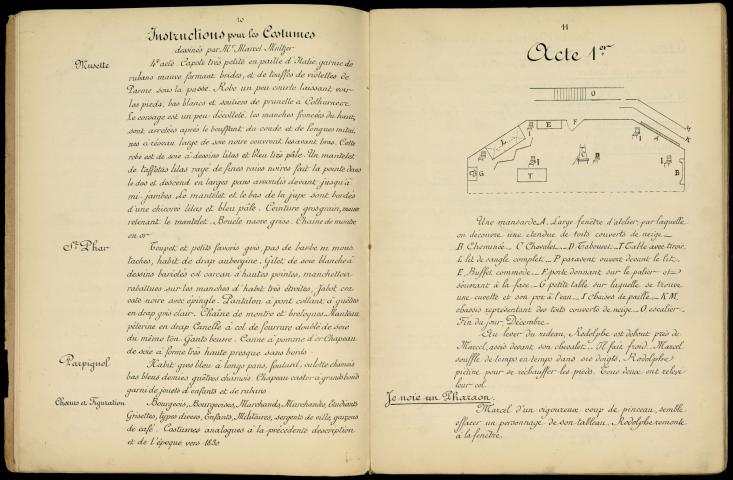 10
Instructions pour les Costumes
dessinés par Mr Marcel Multzer
Musette
4e acte. Capote très petite en paille d'Italie garnie de
rubans mauve formant brides, et de touffes de violettes de
Parme sous la passe. Robe un peu courte laissant voir
les pieds, bas blancs et souliers de prunelle à Cothurnes.
Le corsage est un peu décolleté, les manches froncées du haut,
sont arrêtées après le bouffant du coude et de longues mitai-
nes à réseau large de soie noire couvrent les avant bras. Cette
robe est de soie à dessins lilas et bleu très pâle. Un mantelet
de taffetas lilas rayé de fines raies noires fait la pointe dans
le dos et descend en larges pans arrondis devant jusqu'à
mi-jambes. Le mantelet et le bas de la jupe sont bordés
d'une chicorée lilas et bleu pâle. Ceinture gros grain, mauve
retenant le mantelet. Boucle nacre grise. Chaîne de montre
en or
St Phar
Toupet et petits favoris gris, pas de barbe ni mous-
taches, habit de drap aubergine. Gilet de soie blanche à
dessins bariolés col carcan à hautes pointes, manchettes
rabattues sur les manches d'habit très étroites, Jabot cra-
vate noire avec épingle. Pantalon à pont collant à guêtres
en drap gris clair. Chaîne de montre et breloques. Manteau
pèlerine en drap Canelle à col de fourrure doublé de soie
du même ton. Gants beurre. Canne à pomme d'or Chapeau
de soie à forme très haute presque sans bords.
Parpignol
Habit gros bleu à longs pans, foulard, culotte chamois
bas bleus demies guêtres chamois. Chapeau castor à grands bords
garni de jouets d'enfants et de rubans
Chœurs et Figuration
Bourgeois, Bourgeoises, Marchands, Marchandes, Etudiants
Grisettes, types divers, Enfants, Militaires, sergents de ville, garçons
de café. Costumes analogues à la précédente description
et de l'époque vers 1830
11
Acte 1er
O
E
F
I
L
I
K
K
A
G
I
T
C
B
I
B
Une mansarde A. Large fenêtre d'atelier par laquelle
on découvre une étendue de toits couverts de neige. _
B Cheminée. _ C Chevalet. _ D Tabouret. _ T Table avec tiroir.
L lit de sangle complet. _ P paravent ouvert devant le lit.
E, Buffet commode. _ F porte donnant sur le palier et
s'ouvrant à la face. _ G petite table sur laquelle se trouve
une cuvette et son pot à l'eau. _ I Chaises de paille. _ K M,
chassis représentant des toits couverts de neige. _ O, escalier. _
Fin du jour, Décembre.
Au lever du rideau, Rodolphe est debout près de
Marcel, assis devant son chevalet. _ Il fait froid. Marcel
souffle de temps en temps dans ses doigts, Rodolphe
piétine pour se réchauffer les pieds. Tous deux ont relevé
leur col.
Je noie un Pharaon.
Marcel d'un vigoureux coup de pinceau, semble
effacer un personnage de son tableau. Rodolphe remonte
à la fenêtre.